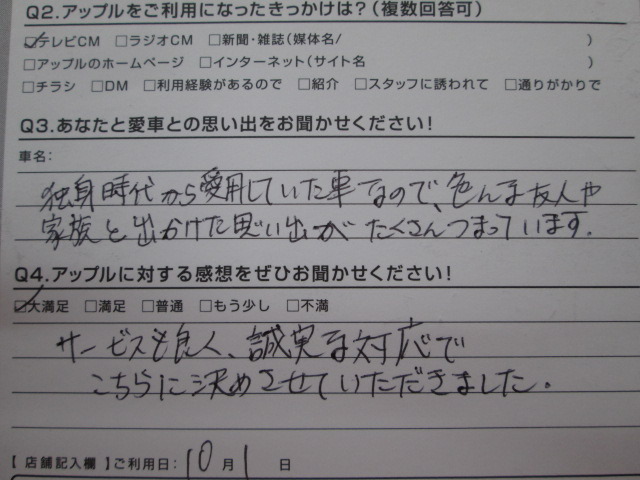 Q2.アップルをご利用になったきっかけは?(複数回答可)
☑テレビCM □ラジオCM □新聞・雑誌(媒体名/ )
□アップルのホームページ □インターネット(サイト名 )
□チラシ □DM □利用経験があるので □紹介 □スタッフに誘われて □通りがかりで
Q3.あなたと愛車との思い出をお聞かせください!
車名:
独身時代から愛用していた車なので、色んな友人や
家族と出かけた思い出がたくさんつまっています.
Q4.アップルに対する感想をぜひお聞かせください!
☑大満足 □満足 □普通 □もう少し □不満
サービスも良く、誠実な対応で
こちらに決めさせていただきました.
【 店舗記入欄 】ご利用日: 10 月 1 日